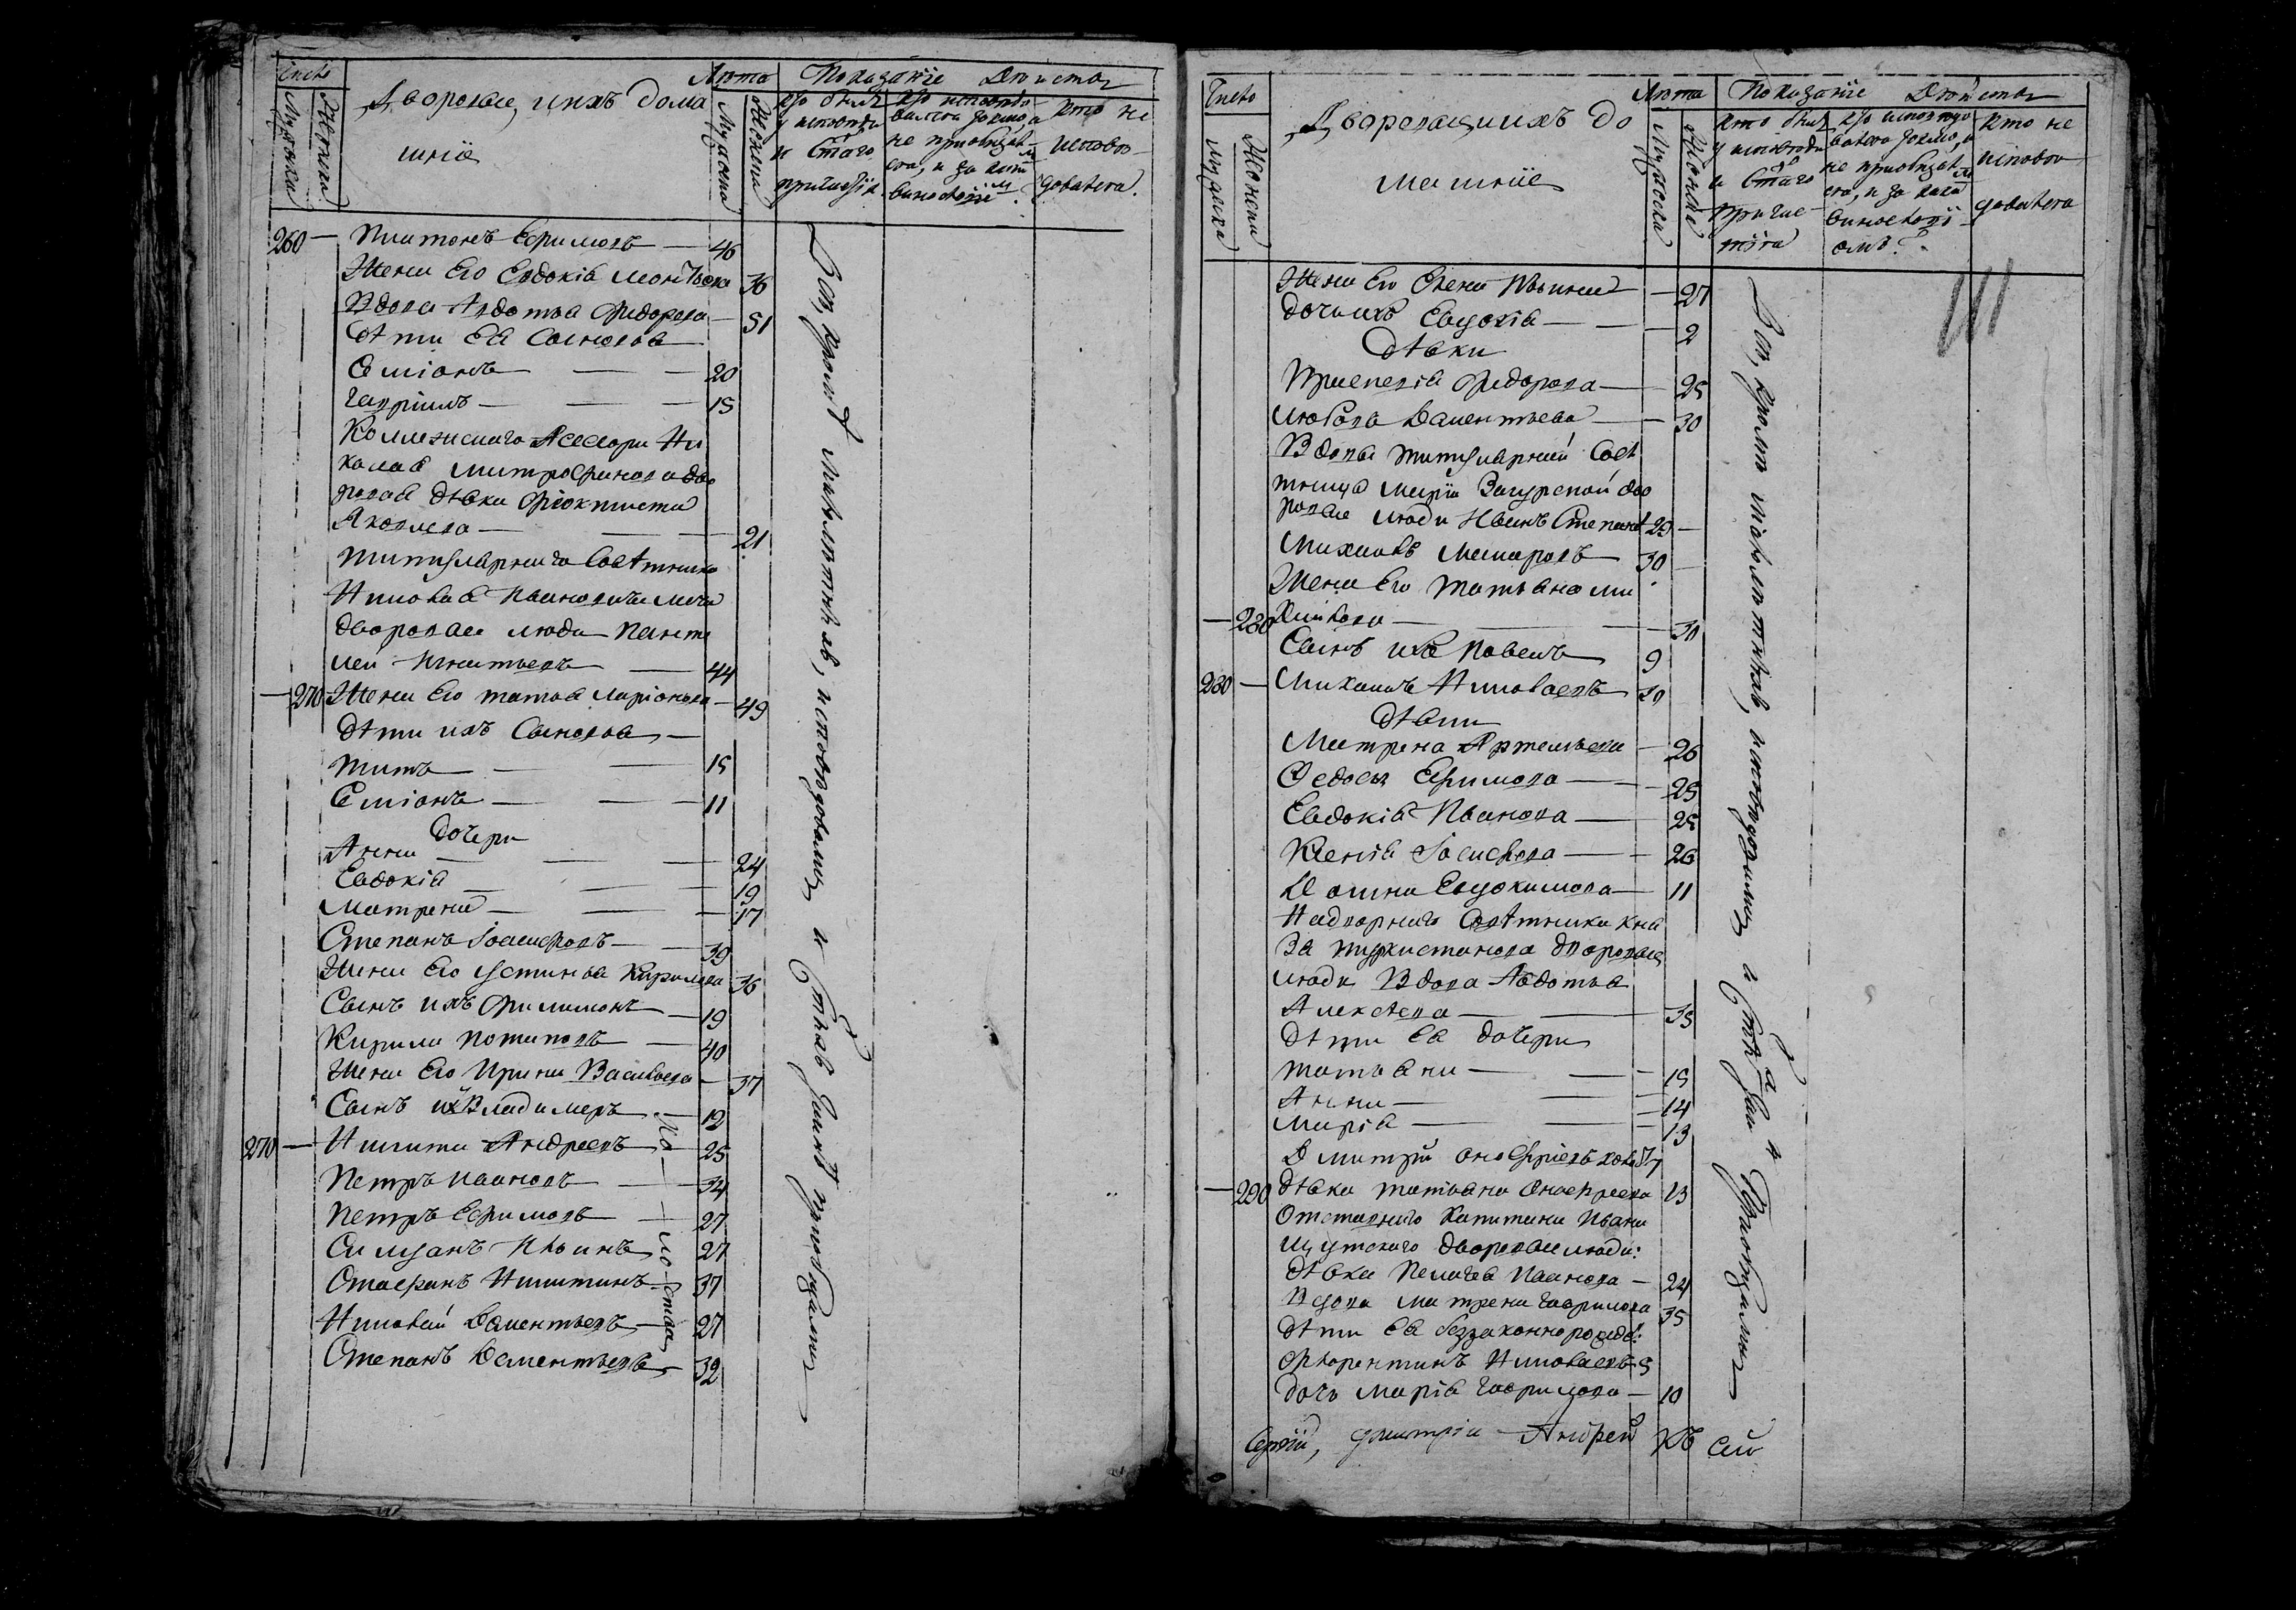 Число
Мужска
Женска
Дворовые, и ихъ дома
шніе
Лета
Мужеска
Женска
Показаніе Действа
кто былъ
у исповеди
и Стаго
причастія
кто исповедо
вался токмо, а
не приобщал
ся, и за каким
винословіем
кто не
исповѣ
довался.
260 — Платонъ Ефимовъ — 46
Жена Его Евдокія Леонтьева 36
Вдова Авдотья Федорова — 51
Дѣти Ея Сыновья
Симіонъ — 20
Гавріилъ — 15
Коллежскаго Асессора Ни
колая Митрофанова дво
ровая дѣвка Фіоктиста
Яковлева — 21
Титулярнаго Совѣтника
Николая Ивановича
дворовые люди Панте
лей Игнатьевъ — 44
— 270 Жена Его Татьяна Ларіонова — 49
Дѣти ихъ Сыновья —
Титъ — 15
Симіонъ — 11
дочери
Анна — 24
Евдокія — 19
Матрена — 17
Степанъ Іосифовъ — 39
Жена Его Устинья Кирилова 36
Сынъ ихъ Филимонъ — 19
Кирила Потаповъ — 40
Жена Его Ирина Васильева — 37
Сынъ их Владимеръ — 12
270 — Никита Андреевъ — 25
Петръ Ивановъ — 34
Петръ Ефимовъ — 27
Ильинъ 27
Стефанъ Никитинъ — 37
Николай Дементьевъ — 27
Степанъ Дементьевъ — 32
Холостые
Вси, кромѣ малолѣтнхъ, исповѣдовались и Стхъ Таинъ приобщались
Число
мужска
Женска
Дворовые и ихъ до
машніе
Лета
Мужеска
Женска
Показаніе Действа
кто былъ
у исповеди
и Стаго
причас
тія
кто исповедо
вался токмо, а
не приобщал
ся, и за каким
винословіі
омъ?
кто не
исповѣ
довался
Жена Его Елена Ильина — 27
дочь ихъ Евдокія — 2
дѣвки
Федорова — 25
Любовь Дементьева — 30
Вдовы титулярной Совѣ
тницы Маріи Загурской дво
ровые люди Иванъ Степанов 29 —
Михаилъ Макаровъ — 30 —
Жена Его Татьяна Ми
— 280 хайлова — 30
Сынъ ихъ Павелъ 9
280 — Михаилъ Николаевъ 30
дѣвки
Матрена Артемьева — 26
Федосья Ефимова — 25
Евдокія Иванова — 25
Ксенія Іосифова — 26
Домна Евдокимова — 11
Надворнаго Совѣтника Кня
зя Туркистанова дворовые
люди Вдова Авдотья
Алексѣева — 35
Дѣти Ея дочери
Татьяна — 15
Анна — 14
Марія — 13
Дмитрій Онофріевъ 57
— 290 дѣвка Татьяна Онофреева 13
Отставнаго Капитана Ивана
Шутскаго дворовые люди:
дѣвка Пелагея Иванова — 24
Вдова Матрена Гаврилова 35
Дѣти Ея беззаконнорожде:
Флорентинъ Николаевъ 5
дочь Марія Гаврилова — 10
Вси, кромѣ малолѣтнхъ, исповѣдовались и Стхъ Таинъ приобщались
Сергій, Димитрій Андрей къ сей